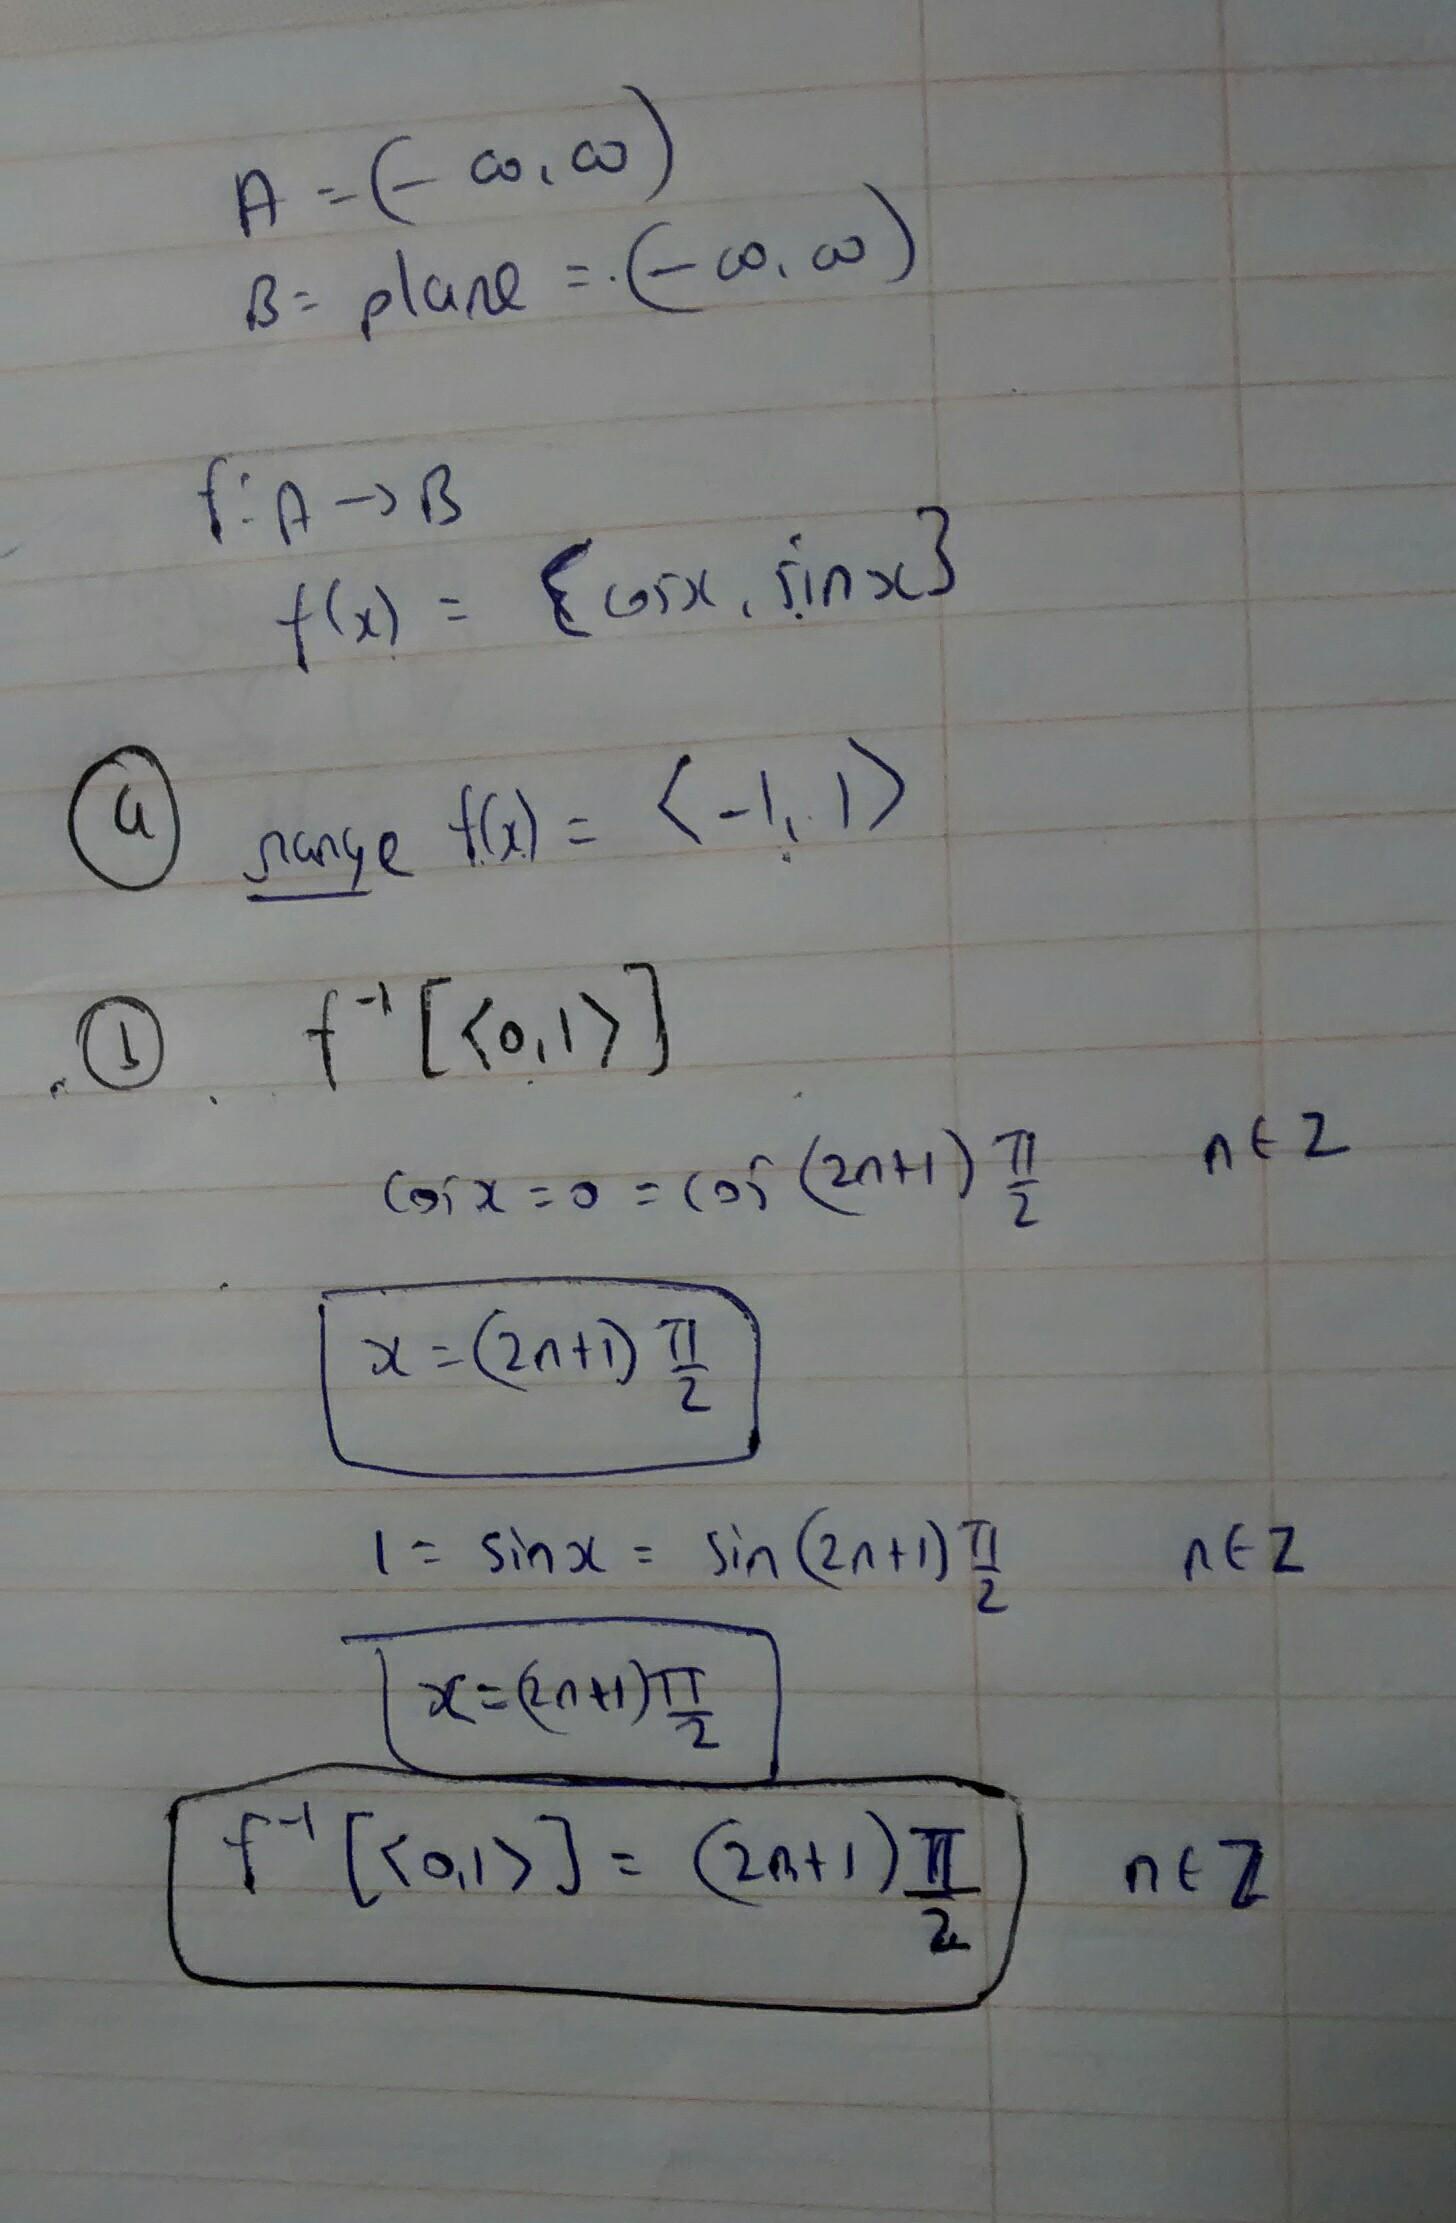 A = (-∞, ∞)
B = plane = (-∞, ∞)
f: A → B
f(x) = {cosx, sinx}
(a) range f(x) = <-1, 1>
(b) f⁻¹[<0,1>]
cosx = 0 = cos(2n+1) π/2 n∈Z
x = (2n+1) π/2
1 = sinx = sin(2n+1) π/2 n∈Z
x = (2n+1) π/2
f⁻¹[<0,1>] = (2n+1) π/2 n∈Z